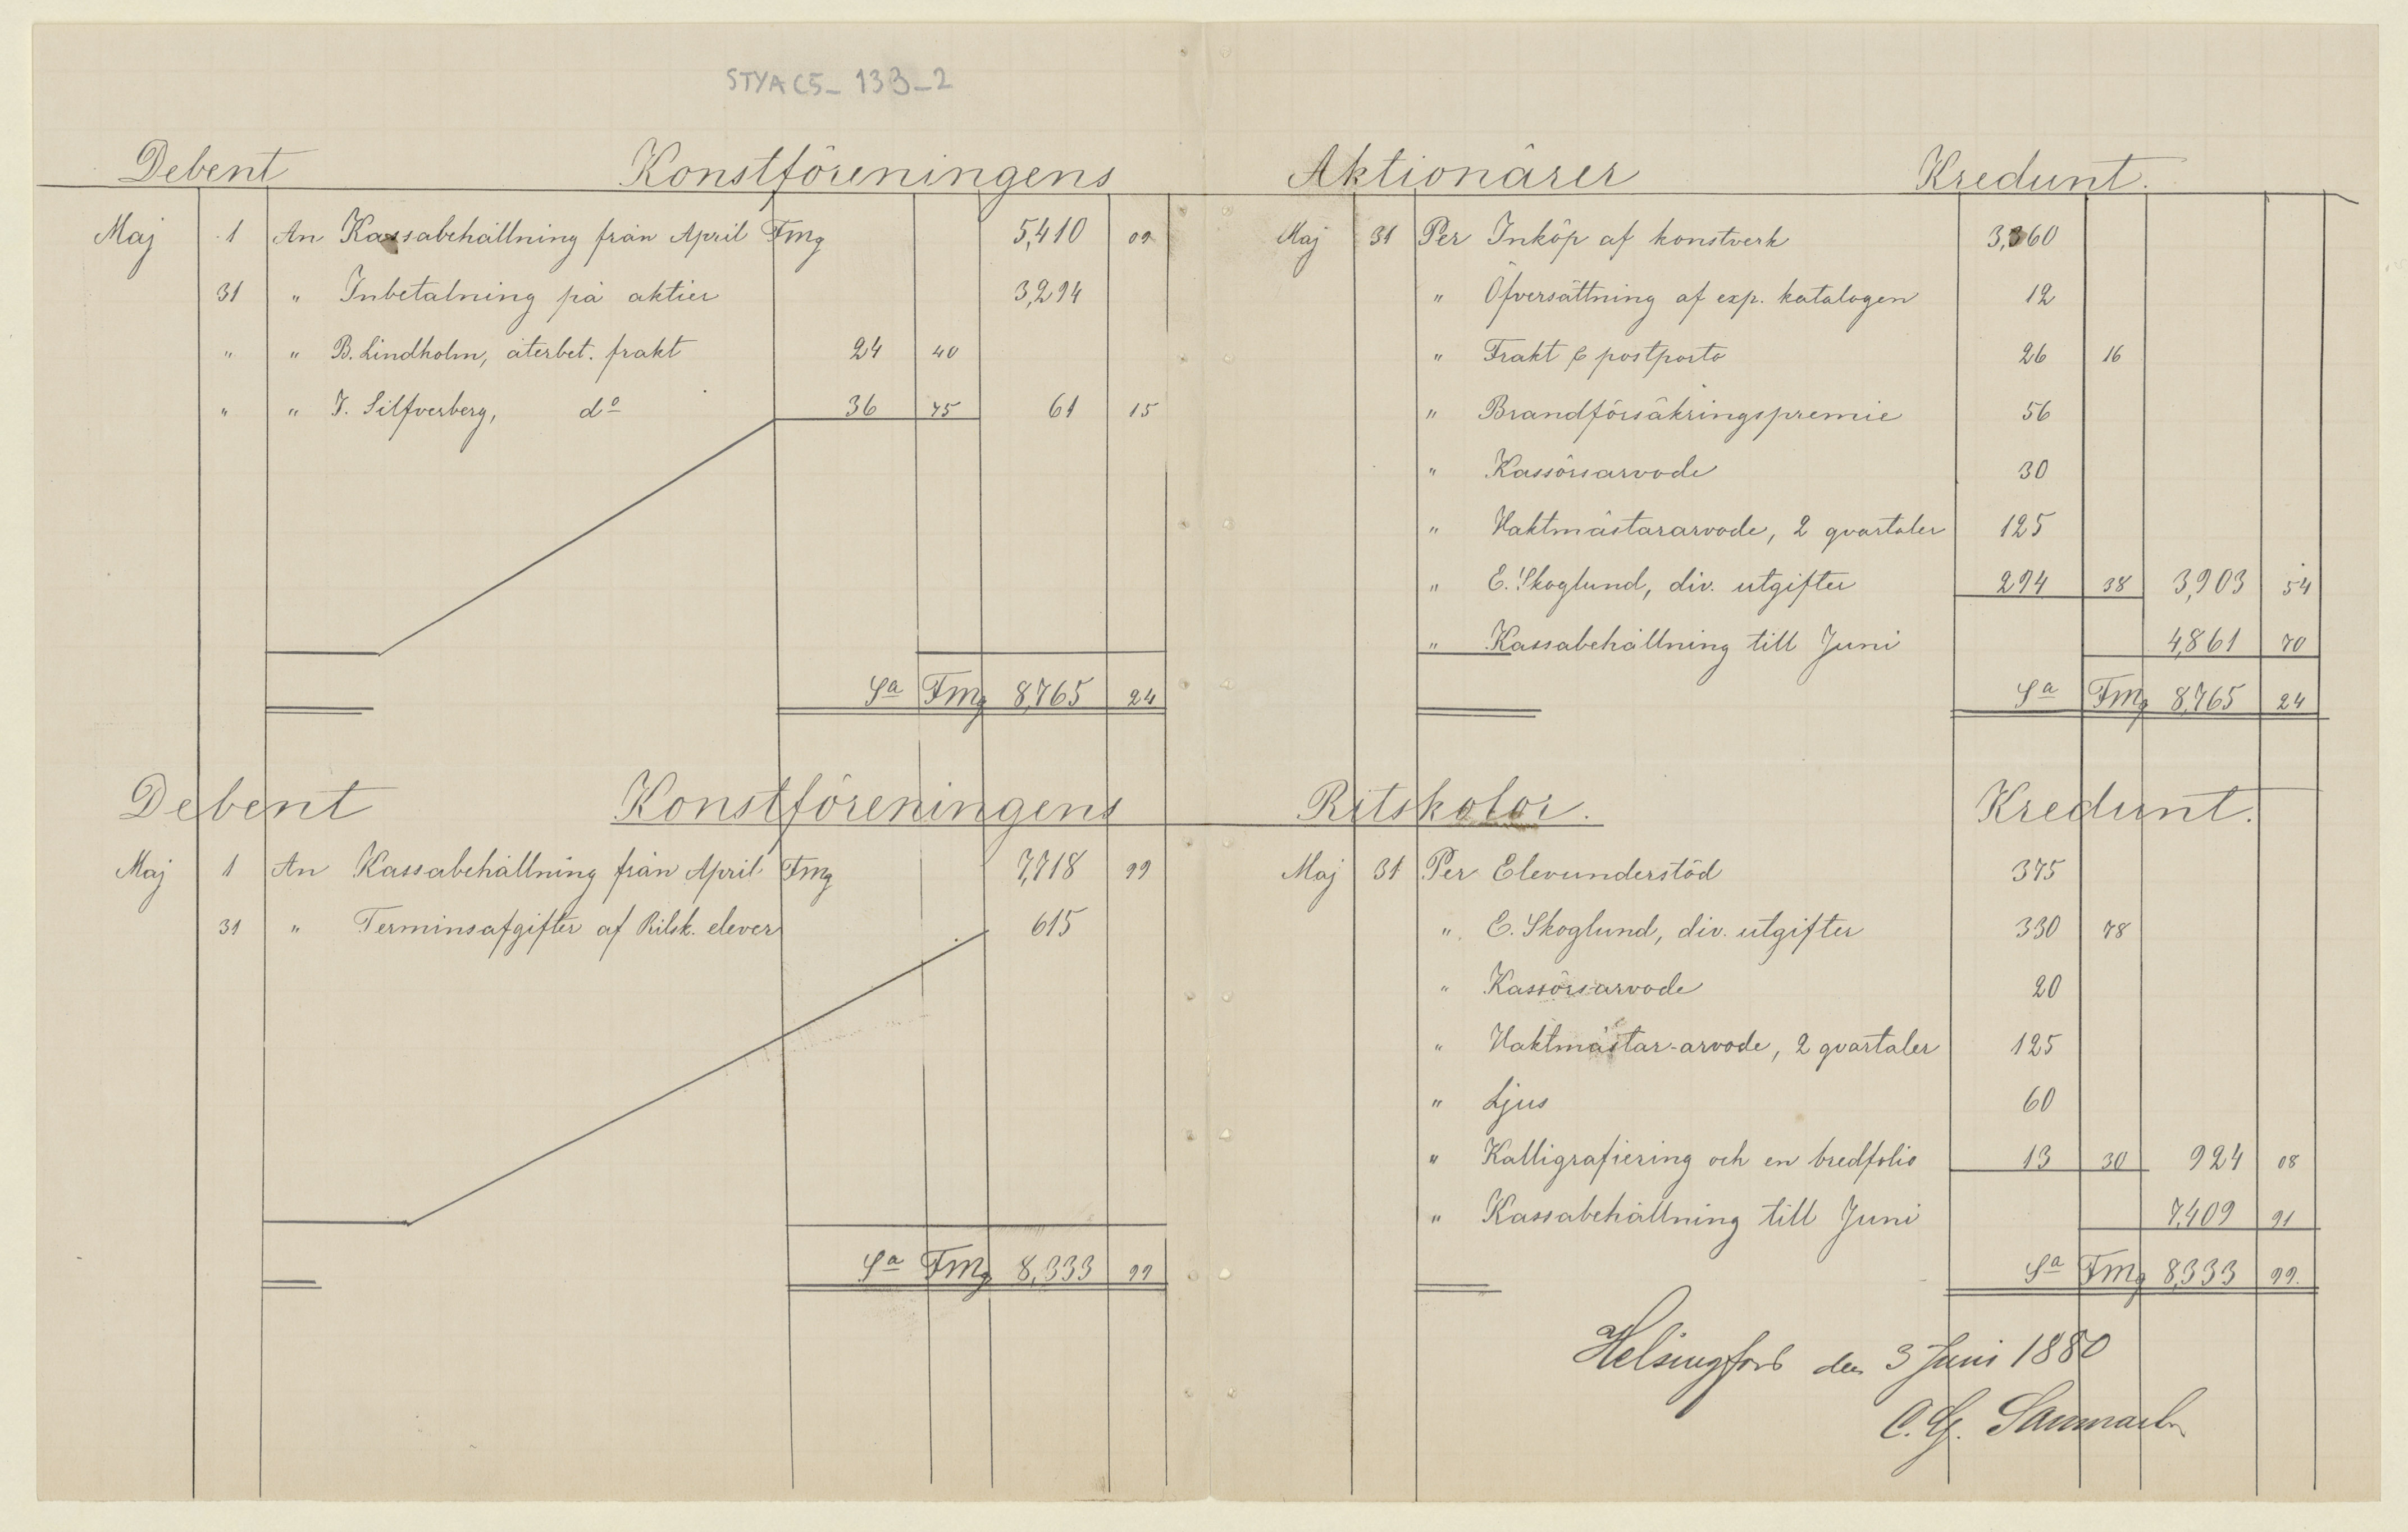 STYA C5_ 133_2
Debent Konstföreningens Aktionärer Kredunt.
Maj 1 An Kassabehållning från April Fmg 5,410 09
31 " Inbetalning på aktier 3,294
" " B. Lindholm, återbet. frakt 24 40
" " J. Silfverberg, do 36 75 61 15
Sa Fmg 8,765 24
Maj 31 Per Inköp af konstverk 3,360
" Öfversättning af exp. katalogen 12
" Frakt & postporto 26 16
" Brandförsäkringspremie 56
" Kassörsarvode 30
" Vaktmästararvode, 2 qvartaler 125
" E. Skoglund, div. utgifter 294 38 3,903 54
" Kassabehållning till Juni 4,861 70
Sa Fmg 8,765 24
Debent Konstföreningens Ritskolor. Kredunt.
Maj 1 An Kassabehållning från April Fmg 7,718 99
31 " Terminsafgifter af Ritsk. elever 615
Sa Fmg 8,333 99
Maj 31 Per Elevunderstöd 375
" E. Skoglund, div. utgifter 330 78
" Kassörsarvode 20
" Vaktmästar-arvode, 2 qvartaler 125
" Ljus 60
" Kalligrafiering och en bredfolio 13 30 924 08
" Kassabehållning till Juni 7,409 91
Sa Fmg 8,333 99.
Helsingfors den 3 Juni 1880
C. G.